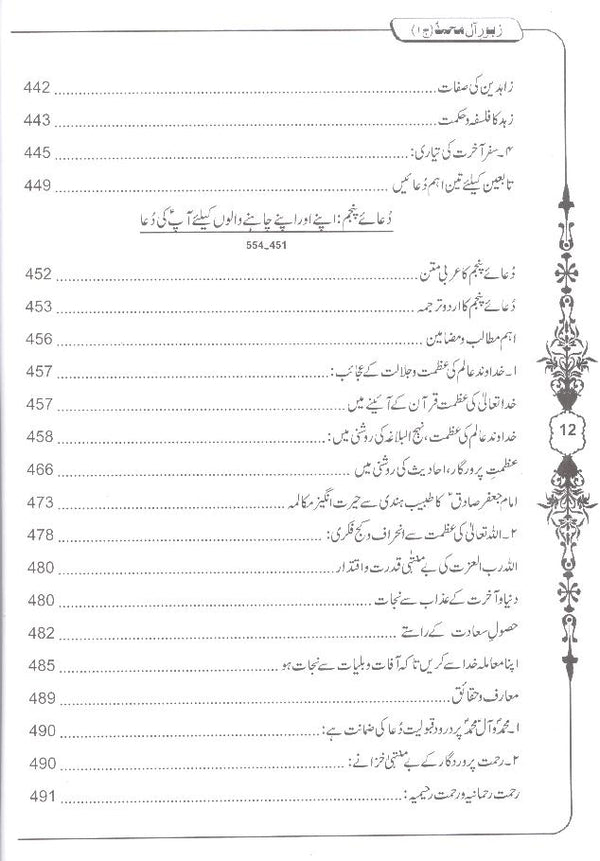 زبور آل محمدؐ (ج ۱)
زاہدین کی صفات 442
زہد کا فلسفہ و حکمت 443
۴۔ سفر آخرت کی تیاری: 445
تابعین کیلئے تین اہم دُعائیں 449
دُعائے پنجم: اپنے اور اپنے چاہنے والوں کیلئے آپؑ کی دُعا
554_451
دُعائے پنجم کا عربی متن 452
دُعائے پنجم کا اردو ترجمہ 453
اہم مطالب و مضامین 456
۱۔ خداوند عالم کی عظمت و جلالت کے عجائب: 457
خدا تعالیٰ کی عظمت قرآن کے آئینے میں 457
خداوند عالم کی عظمت، نہج البلاغہ کی روشنی میں: 458
عظمتِ پرورگار، احادیث کی روشنی میں 466
امام جعفر صادقؑ کا طبیب ہندی سے حیرت انگیز مکالمہ 473
۲۔ اللہ تعالیٰ کی عظمت سے انحراف و کج فکری: 478
اللہ رب العزت کی بے منتہٰی قدرت و اقتدار 480
دنیا و آخرت کے عذاب سے نجات 480
حصولِ سعادت کے راستے 482
اپنا معاملہ خدا سے کریں تاکہ آفات و بلیات سے نجات ہو 485
معارف و حقائق 489
۱۔ محمدؐ و آل محمدؐ پر درود قبولیت دُعا کی ضمانت ہے: 490
۲۔ رحمت پروردگار کے بے منتہیٰ خزانے: 490
رحمت رحمانیہ و رحمت رحیمیہ: 491
12